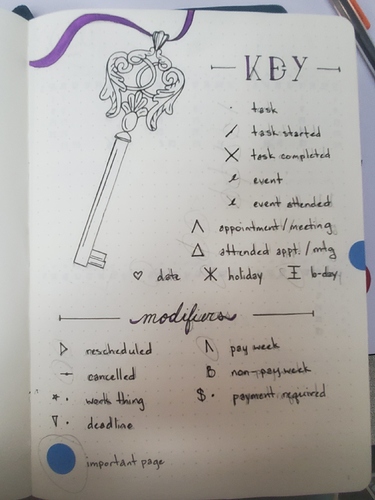 KEY
· task
/ task started
X task completed
event
event attended
Λ appointment/meeting
Δ attended appt./mtg
♡ date holiday b-day
modifiers
▷ rescheduled
cancelled
* · worth thing
▽ · deadline
pay week
B non-pay week
$ · payment required
important page